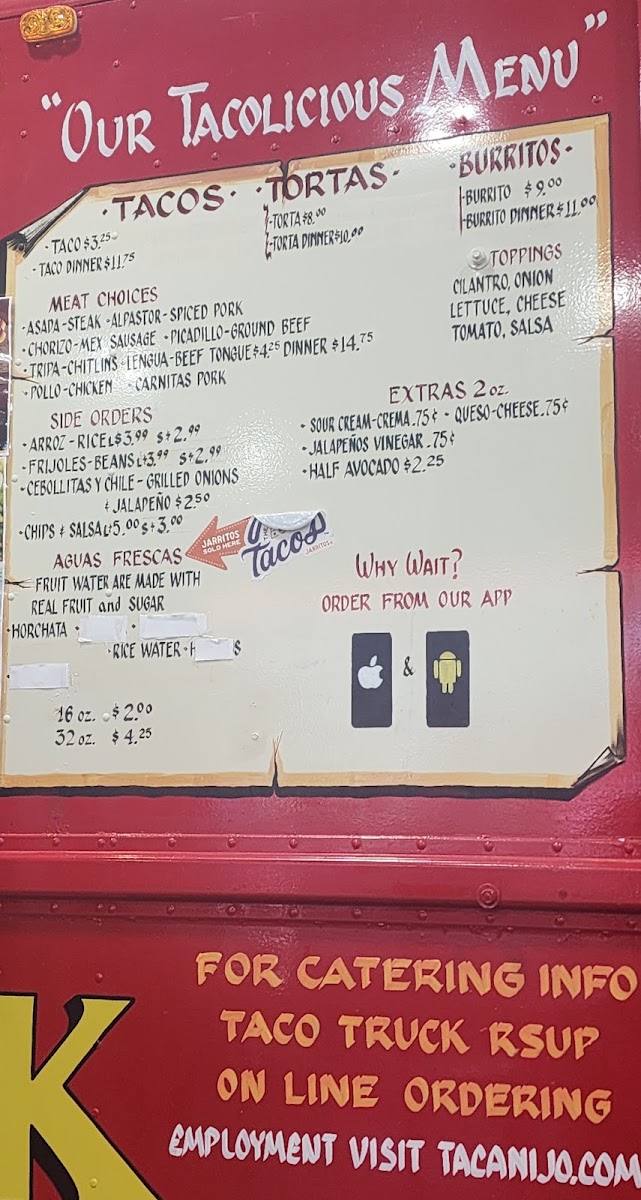 "OUR TACOLICIOUS MENU"
·TACOS·
·TACO $3.25
·TACO DINNER $11.75
·TORTAS·
-TORTA $8.00
-TORTA DINNER $10.00
·BURRITOS·
-BURRITO $9.00
-BURRITO DINNER $11.00
TOPPINGS
CILANTRO, ONION
LETTUCE, CHEESE
TOMATO, SALSA
MEAT CHOICES
·ASADA-STEAK ·ALPASTOR-SPICED PORK
·CHORIZO-MEX SAUSAGE ·PICADILLO-GROUND BEEF
·TRIPA-CHITLINS ·LENGUA-BEEF TONGUE $4.25 DINNER $14.75
·POLLO-CHICKEN ·CARNITAS PORK
SIDE ORDERS
·ARROZ-RICE L$3.99 S$2.99
·FRIJOLES-BEANS L$3.99 S$2.99
·CEBOLLITAS Y CHILE-GRILLED ONIONS
& JALAPEÑO $2.50
·CHIPS & SALSA L$5.00 S$3.00
EXTRAS 2 oz.
·SOUR CREAM-CREMA .75¢ ·QUESO-CHEESE .75¢
·JALAPEÑOS VINEGAR .75¢
·HALF AVOCADO $2.25
JARRITOS
SOLD HERE
Tacos
JARRITOS
AGUAS FRESCAS
FRUIT WATER ARE MADE WITH
REAL FRUIT and SUGAR
·HORCHATA
·RICE WATER
16 oz. $2.00
32 oz. $4.25
WHY WAIT?
ORDER FROM OUR APP
&
FOR CATERING INFO
TACO TRUCK RSUP
ON LINE ORDERING
EMPLOYMENT VISIT TACANIJO.COM
K